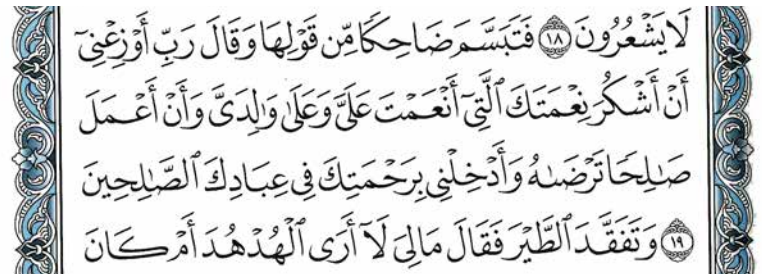 لَا يَشْعُرُونَ ﴿١٨﴾ فَتَبَسَّمَ ضَاحِكًا مِّن قَوْلِهَا وَقَالَ رَبِّ أَوْزِعْنِىٓ
أَنْ أَشْكُرَ نِعْمَتَكَ ٱلَّتِىٓ أَنْعَمْتَ عَلَىَّ وَعَلَىٰ وَٰلِدَىَّ وَأَنْ أَعْمَلَ
صَٰلِحًا تَرْضَىٰهُ وَأَدْخِلْنِى بِرَحْمَتِكَ فِى عِبَادِكَ ٱلصَّٰلِحِينَ
﴿١٩﴾ وَتَفَقَّدَ ٱلطَّيْرَ فَقَالَ مَالِىَ لَآ أَرَى ٱلْهُدْهُدَ أَمْ كَانَ